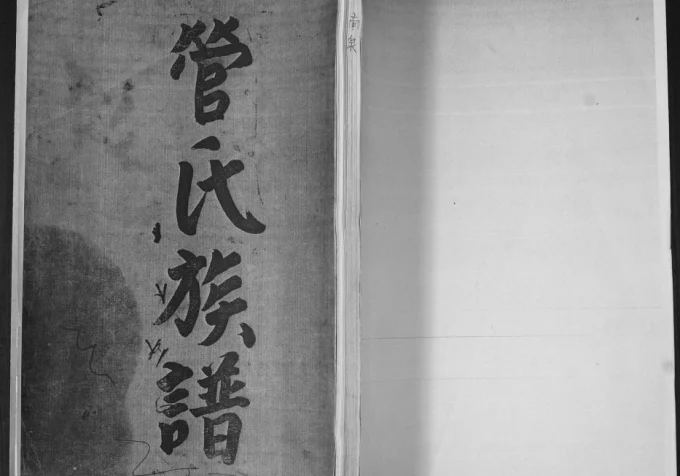 管氏族譜